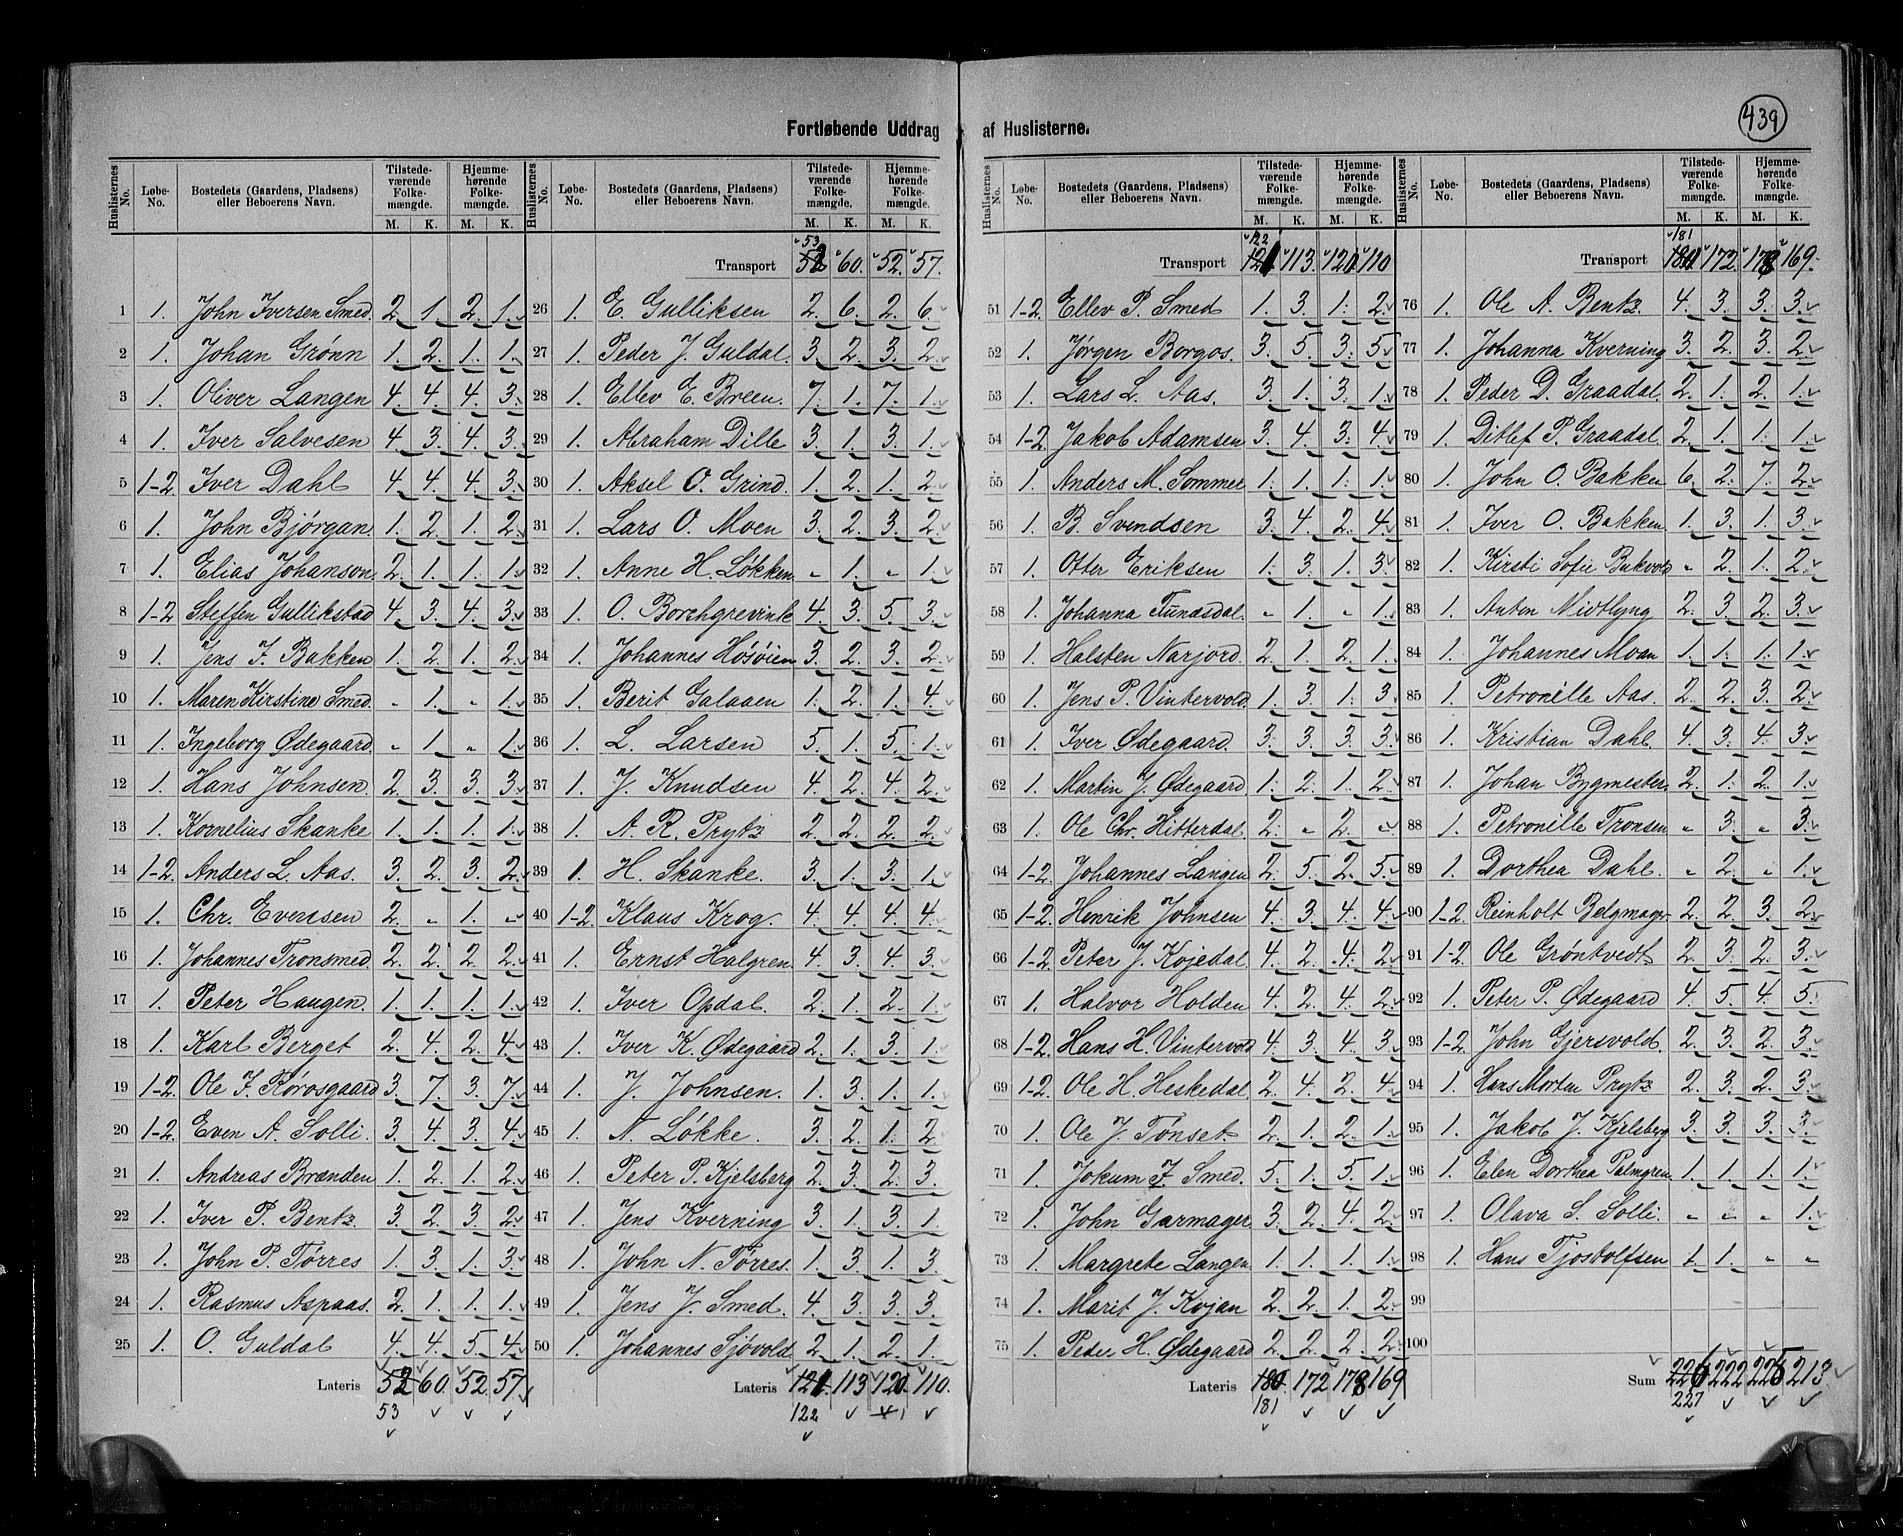 439
Fortløbende Uddrag af Huslisterne.
Huslisternes No. Løbe-No. Bostedets (Gaardens, Pladsens) eller Beboerens Navn. Tilstedeværende Folkemængde. M. K. Hjemmehørende Folkemængde. M. K.
1 1. John Iversen Smed. 2. 1. 2. 1.
2 1. Johan Grønn 1. 2. 1. 1.
3 1. Oliver Langen 4. 4. 4. 3.
4 1. Iver Salvesen 4. 3. 4. 3.
5 1-2. Iver Dahl 4. 4. 4. 3.
6 1. John Bjørgan. 1. 2. 1. 2.
7 1. Elias Johanson. 2. 1. 1. 1.
8 1-2 Steffen Gullikstad 4. 3. 4. 3.
9 1. Jens J. Bakken 1. 2. 1. 2.
10 1. Maren Kirstine Smed. „ 1. „ 1.
11 1. Ingeborg Ødegaard. „ 1. „ 1.
12 1. Hans Johnsen. 2. 3. 3. 3.
13 1. Kornelius Skanke 1. 1. 1. 1.
14 1-2. Anders L. Aas. 3. 2. 3. 2.
15 1. Chr. Evensen 2. „ 1. „
16 1. Johannes Tronsmed. 2. 2. 2. 2.
17 1. Peter Haugen 1. 1. 1. 1.
18 1. Karl Berget 2. 4. 2. 4.
19 1-2. Ole J. Rørosgaard 3. 7. 3. 7.
20 1-2. Even A. Solli. 3. 4. 3. 4.
21 1. Andreas Brænden 1. 2. 1. 2.
22 1. Iver P. Bentz. 3. 2. 3. 2.
23 1. John P. Tørres 1. 3. 1. 3.
24 1. Rasmus Aspaas. 2. 1. 1. 1.
25 1. O. Guldal 4. 4. 5. 4.
Lateris 52 60. 52. 57.
53
Huslisternes No. Løbe-No. Bostedets (Gaardens, Pladsens) eller Beboerens Navn. Tilstedeværende Folkemængde. M. K. Hjemmehørende Folkemængde. M. K.
53
Transport 52 60. 52. 57.
26 1. E. Gulliksen 2. 6. 2. 6.
27 1. Peder J. Guldal. 3. 2. 3. 2.
28 1. Ellev E. Breen. 7. 1. 7. 1.
29 1. Abraham Dille 3. 1. 3. 1.
30 1. Aksel O. Grind. 1. 2. 1. 2.
31 1. Lars O. Moen 3. 2. 3. 2.
32 1. Anne H. Løkken. „ 1. „ 1.
33 1. O. Borchgrevink 4. 3. 5. 3.
34 1. Johannes Høsøien 3. 2. 3. 2.
35 1. Berit Galaaen 1. 2. 1. 4.
36 1. L. Larsen 5. 1. 5. 1.
37 1. J. Knudsen 4. 2. 4. 2.
38 1. A. R. Prytz 2. 2. 2. 2.
39 1. H. Skanke. 3. 1. 3. 1.
40 1-2. Klaus Krog. 4. 4. 4. 4.
41 1. Ernst Halgren. 4. 3. 4. 3.
42 1. Iver Opdal. 2. 1. 2. 1.
43 1. Iver K. Ødegaard 2. 1. 3. 1.
44 1. J. Johnsen. 1. 3. 1. 1.
45 1. N. Løkke. 3. 2. 1. 2.
46 1. Peter P. Kjelsberg 2. 3. 2. 3.
47 1. Jens Kverning 3. 1. 3. 1.
48 1. John N. Tørres. 1. 3. 1. 3.
49 1. Jens J. Smed. 4. 3. 3. 3.
50 1. Johannes Sjøvold. 2. 1. 2. 1.
Lateris 121. 113 120. 110.
122
Huslisternes No. Løbe-No. Bostedets (Gaardens, Pladsens) eller Beboerens Navn. Tilstedeværende Folkemængde. M. K. Hjemmehørende Folkemængde. M. K.
122
Transport 121 113. 120. 110
51 1-2. Ellev P. Smed 1. 3. 1. 2.
52 1. Jørgen Borgos. 3. 5. 3. 5.
53 1. Lars L. Aas. 3. 1. 3. 1.
54 1-2. Jakob Adamsen 3. 4. 3. 4.
55 1. Anders M. Sommer 1. 1. 1. 1.
56 1. B. Svendsen 3. 4. 2. 4.
57 1. Otter Eriksen 1. 3. 1. 3.
58 1. Johanna Tundsdal. „ 1. „ 1.
59 1. Halsten Narjord. 2. 1. 2. 1.
60 1. Jens P. Vintervold. 1. 3. 1. 3.
61 1. Iver Ødegaard. 3. 3. 3. 3.
62 1. Martin J. Ødegaard. 1. 2. 1. 2.
63 1. Ole Chr. Hitterdal. 2. „ 2. „
64 1-2. Johannes Langen 2. 5. 2. 5.
65 1-2. Henrik Johnsen 4. 3. 4. 4.
66 1-2. Peter J. Kojedal. 4. 2. 4. 2.
67 1. Halvor Holden 4. 2. 4. 2.
68 1-2. Hans H. Vintervold 4. 3. 4. 3.
69 1-2. Ole H. Heskedal. 2. 4. 2. 4.
70 1. Ole J. Tønset. 2. 1. 2. 1.
71 1. Jokum J. Smed. 5. 1. 5. 1.
72 1. John Garmager 3. 2. 4. 2.
73 1. Margrete Langen 1. 1. 1. 1.
74 1. Marit J. Kojan 2. 2. 1. 2.
75 1. Peder H. Ødegaard 2. 2. 2. 2.
Lateris 180. 172 178 169
181
Huslisternes No. Løbe-No. Bostedets (Gaardens, Pladsens) eller Beboerens Navn. Tilstedeværende Folkemængde. M. K. Hjemmehørende Folkemængde. M. K.
181
Transport 180 172. 178 169.
76 1. Ole A. Bentz. 4. 3. 3. 3.
77 1. Johanna Kverning 3. 2. 3. 2.
78 1. Peder D. Graadal. 2. 1. 2. 1.
79 1. Ditlef P. Graadal. 2. 1. 1. 1.
80 1. John O. Bakken 6. 2. 7. 2.
81 1. Iver O. Bakken. 1. 3. 1. 3.
82 1. Kirsti Sofie Bukvold „ 2. 1. 2.
83 1. Anton Midtlyng 2. 3. 2. 3.
84 1. Johannes Moan 1. 1. 1. 1.
85 1. Petronille Aas. 2. 2. 3. 2.
86 1. Kristian Dahl. 4. 3. 4. 3.
87 1. Johan Bygmester 2. 1. 2. 1.
88 1. Petronille Tronsen „ 3. „ 3.
89 1. Dorthea Dahl. „ 2. „ 1.
90 1-2. Reinholt Belgmager 2. 2. 3. 2.
91 1-2. Ole Grøntvedt 2. 3. 2. 3.
92 1. Peter P. Ødegaard 4. 5. 4. 5.
93 1-2. John Gjersvold. 2. 3. 2. 3.
94 1. Hans Morten Prytz 2. 3. 2. 3.
95 1. Jakob J. Kjelsberg 3. 3. 3. 3.
96 1. Elen Dorthea Palmgren. 1. 1. 1. 1.
97 1. Olava S. Solli. „ „ „ 1.
98 1. Hans Tjostolfsen 1. 1. „ „
99
100
Sum 226 222 225 213.
227